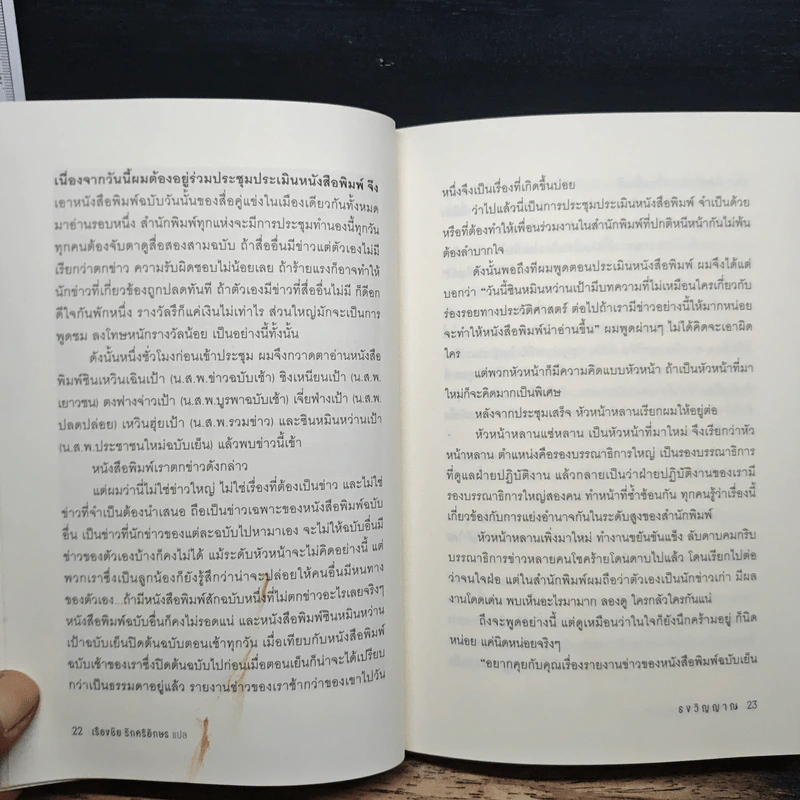 เนื่องจากวันนี้ผมต้องอยู่ร่วมประชุมประเมินหนังสือพิมพ์ จึง
เอาหนังสือพิมพ์ฉบับวันนั้นของสื่อคู่แข่งในเมืองเดียวกันทั้งหมด
มาอ่านรอบหนึ่ง สำนักพิมพ์ทุกแห่งจะมีการประชุมทำนองนี้ทุกวัน
ทุกคนต้องจับตาดูสื่อสองสามฉบับ ถ้าสื่ออื่นมีข่าวแต่ตัวเองไม่มี
เรียกว่าตกข่าว ความรับผิดชอบไม่น้อยเลย ถ้าร้ายแรงก็อาจทำให้
นักข่าวที่เกี่ยวข้องถูกปลดทันที ถ้าตัวเองมีข่าวที่สื่ออื่นไม่มี ก็ดีอก
ดีใจกันพักหนึ่ง รางวัลรึก็แค่เงินไม่เท่าไร ส่วนใหญ่มักจะเป็นการ
พูดชม ลงโทษหนักรางวัลน้อย เป็นอย่างนี้ทั้งนั้น
ดังนั้นหนึ่งชั่วโมงก่อนเข้าประชุม ผมจึงกวาดตาอ่านหนังสือ
พิมพ์ซินเหวินเฉินเป้า (น.ส.พ.ข่าวฉบับเช้า) ชิงเหนียนเป้า (น.ส.พ.
เยาวชน) ตงฟางจ่าวเป้า (น.ส.พ.บูรพาฉบับเช้า) เจี่ยฟางเป้า (น.ส.พ.
ปลดปล่อย) เหวินฮุ่ยเป้า (น.ส.พ.รวมข่าว) และซินหมินหว่านเป้า
(น.ส.พ.ประชาชนใหม่ฉบับเย็น) แล้วพบข่าวนี้เข้า
หนังสือพิมพ์เราตกข่าวดังกล่าว
แต่ผมว่านี่ไม่ใช่ข่าวใหญ่ ไม่ใช่เรื่องที่ต้องเป็นข่าว และไม่ใช่
ข่าวที่จำเป็นต้องนำเสนอ ถือเป็นข่าวเฉพาะของหนังสือพิมพ์ฉบับ
อื่น เป็นข่าวที่นักข่าวของแต่ละฉบับไปหามาเอง จะไม่ให้ฉบับอื่นมี
ข่าวของตัวเองบ้างก็คงไม่ได้ แม้ระดับหัวหน้าจะไม่คิดอย่างนี้ แต่
พวกเราซึ่งเป็นลูกน้องก็ยังรู้สึกว่าน่าจะปล่อยให้คนอื่นมีหนทาง
ของตัวเอง...ถ้ามีหนังสือพิมพ์สักฉบับหนึ่งที่ไม่ตกข่าวอะไรเลยจริงๆ
หนังสือพิมพ์ฉบับอื่นก็คงไม่รอดแน่ และหนังสือพิมพ์ซินหมินหว่าน
เป้าฉบับเย็นปิดต้นฉบับตอนเช้าทุกวัน เมื่อเทียบกับหนังสือพิมพ์
ฉบับเช้าของเราซึ่งปิดต้นฉบับไปก่อนเมื่อตอนเย็นก็น่าจะได้เปรียบ
กว่าเป็นธรรมดาอยู่แล้ว รายงานข่าวของเราช้ากว่าของเขาไปวัน
22 เรืองชัย รักศรีอักษร แปล
หนึ่งจึงเป็นเรื่องที่เกิดขึ้นบ่อย
ว่าไปแล้วนี่เป็นการประชุมประเมินหนังสือพิมพ์ จำเป็นด้วย
หรือที่ต้องทำให้เพื่อนร่วมงานในสำนักพิมพ์ที่ปกติหนีหน้ากันไม่พ้น
ต้องลำบากใจ
ดังนั้นพอถึงทีผมพูดตอนประเมินหนังสือพิมพ์ ผมจึงได้แต่
บอกว่า “วันนี้ซินหมินหว่านเป้ามีบทความที่ไม่เหมือนใครเกี่ยวกับ
ร่องรอยทางประวัติศาสตร์ ต่อไปถ้าเรามีข่าวอย่างนี้ให้มากหน่อย
จะทำให้หนังสือพิมพ์น่าอ่านขึ้น” ผมพูดผ่านๆ ไม่ได้คิดจะเอาผิด
ใคร
แต่พวกหัวหน้าก็มีความคิดแบบหัวหน้า ถ้าเป็นหัวหน้าที่มา
ใหม่ก็จะคิดมากเป็นพิเศษ
หลังจากประชุมเสร็จ หัวหน้าหลานเรียกผมให้อยู่ต่อ
หัวหน้าหลานแซ่หลาน เป็นหัวหน้าที่มาใหม่ จึงเรียกว่าหัว
หน้าหลาน ตำแหน่งคือรองบรรณาธิการใหญ่ เป็นรองบรรณาธิการ
ที่ดูแลฝ่ายปฏิบัติงาน แล้วกลายเป็นว่าฝ่ายปฏิบัติงานของเรามี
รองบรรณาธิการใหญ่สองคน ทำหน้าที่ซ้ำซ้อนกัน ทุกคนรู้ว่าเรื่องนี้
เกี่ยวข้องกับการแย่งอำนาจกันในระดับสูงของสำนักพิมพ์
หัวหน้าหลานเพิ่งมาใหม่ ทำงานขยันขันแข็ง ลับดาบคมกริบ
บรรณาธิการข่าวหลายคนโชคร้ายโดนดาบไปแล้ว โดนเรียกไปต่อ
ว่าจนใจฝ่อ แต่ในสำนักพิมพ์ผมถือว่าตัวเองเป็นนักข่าวเก่า มีผล
งานโดดเด่น พบเห็นอะไรมามาก ลองดู ใครกลัวใครกันแน่
ถึงจะพูดอย่างนี้ แต่ดูเหมือนว่าในใจก็ยังนึกคร้ามอยู่ ก็นิด
หน่อย แค่นิดหน่อยจริงๆ
“อยากคุยกับคุณเรื่องรายงานข่าวของหนังสือพิมพ์ฉบับเย็น
ธงวิญญาณ 23